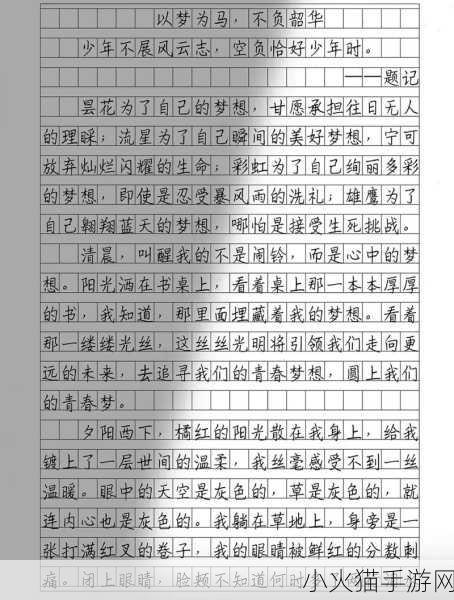 以梦为马，不负韶华
少年不展风云志，空负恰好少年时。
——题记
昙花为了自己的梦想，甘愿承担往日无人
的理睬；流星为了自己瞬间的美好梦想，宁可
放弃灿烂闪耀的生命；彩虹为了自己绚丽多彩
的梦想，即使是忍受暴风雨的洗礼；雄鹰为了
自己翱翔蓝天的梦想，哪怕是接受生死挑战。
清晨，叫醒我的不是闹铃，而是心中的梦
想。阳光洒在书桌上，看着桌上那一本本厚厚
的书，我知道，那里面埋藏着我的梦想。看着
那一缕缕光丝，这丝丝光明将引领我们走向更
远的未来，去追寻我们的青春梦想，圆上我们
的青春梦。
夕阳西下，橘红的阳光散在我身上，给我
镀上了一层世间的温柔，我丝毫感受不到一丝
温暖。眼中的天空是灰色的，草是灰色的，就
连内心也是灰色的。我躺在草地上，身旁是一
张打满红叉的卷子，我的眼睛被鲜红的分数刺
痛。闭上眼睛，脸颊不知道何时
小火猫手游网